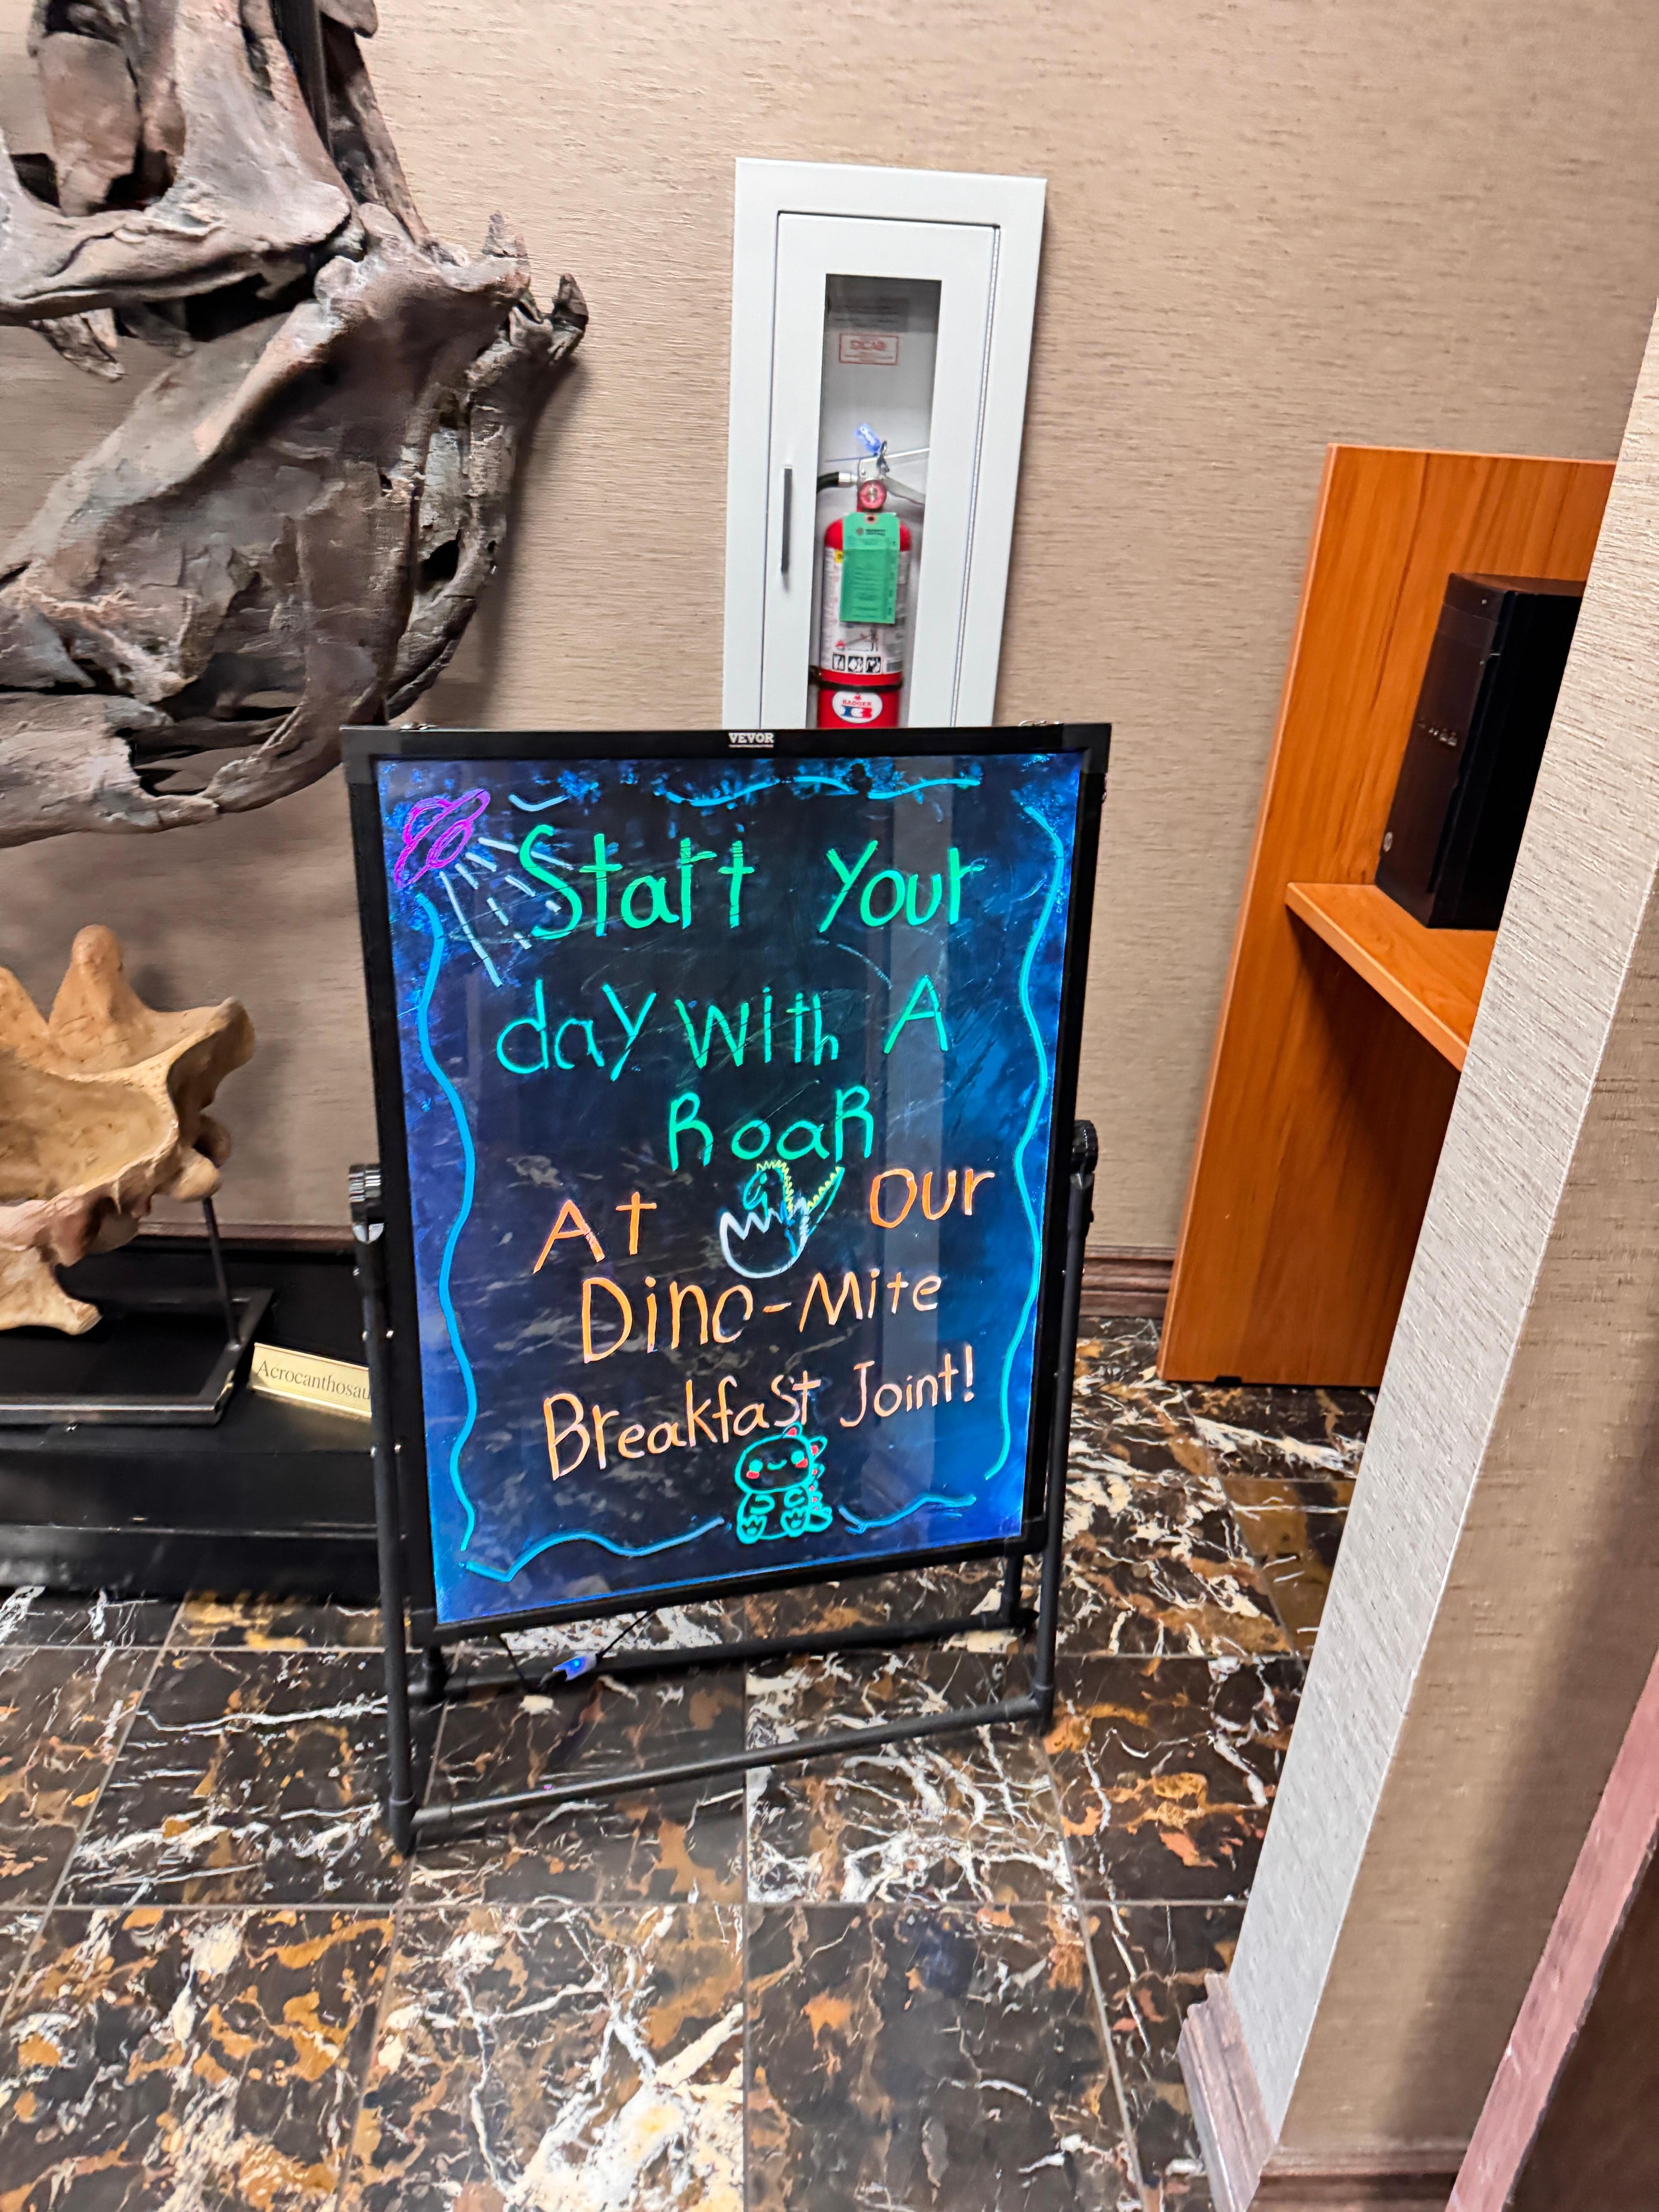 VEVOR
Start Your
day With A
RoaR
At Our
Dino-Mite
Breakfast Joint!
Acrocanthosau
BADGER